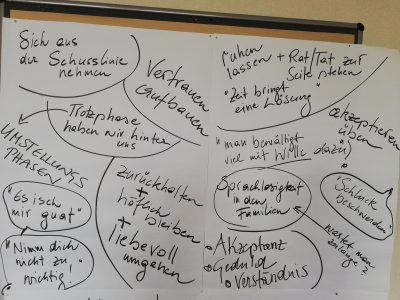 Sich aus
der Schusslinie
nehmen
Vertrauen
aufbauen
Trotzphase
haben wir hinter
uns
UMSTELLUNGS
PHASEN
"Es isch
mir guat"
"Nimm dich
nicht zu
wichtig!"
zurückhalten
+
höflich bleiben
+
liebevoll
umgehen
ruhen
lassen + Rat/Tat zur
Seite stehen
"Zeit bringt
eine Lösung"
akzeptieren
üben
"man bewältigt
viel mit Wille dazu"
Sprachlosigkeit
in den
Familien
"Schluck
beschwerden"
wartet man
zulange?
Akzeptanz
Geduld
Verständnis